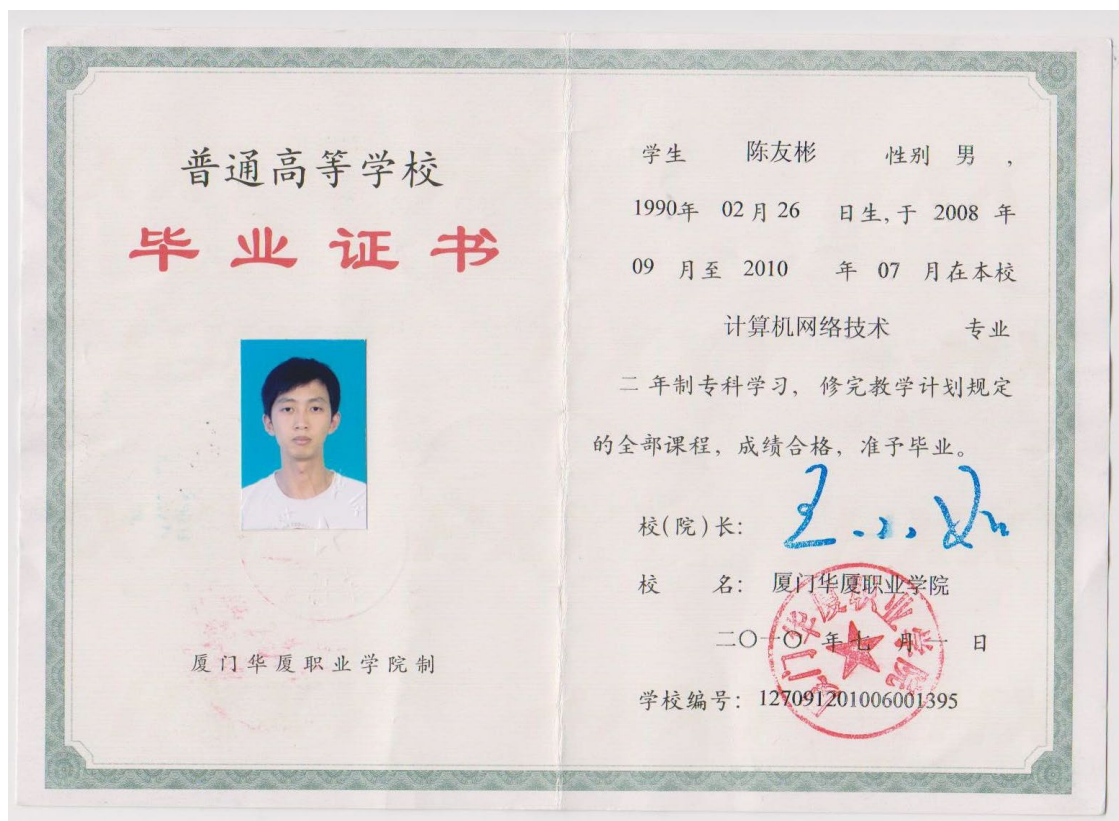 普通高等学校
毕业证书
厦门华厦职业学院制
学生 陈友彬 性别 男 ,
1990年 02月26 日生,于 2008 年
09 月至 2010 年 07 月在本校
计算机网络技术 专业
二 年制专科学习, 修完教学计划规定
的全部课程, 成绩合格, 准予毕业。
校(院)长:
校 名: 厦门华厦职业学院
二〇一〇 年 七 月 一 日
学校编号: 127091201006001395
厦门华厦职业学院